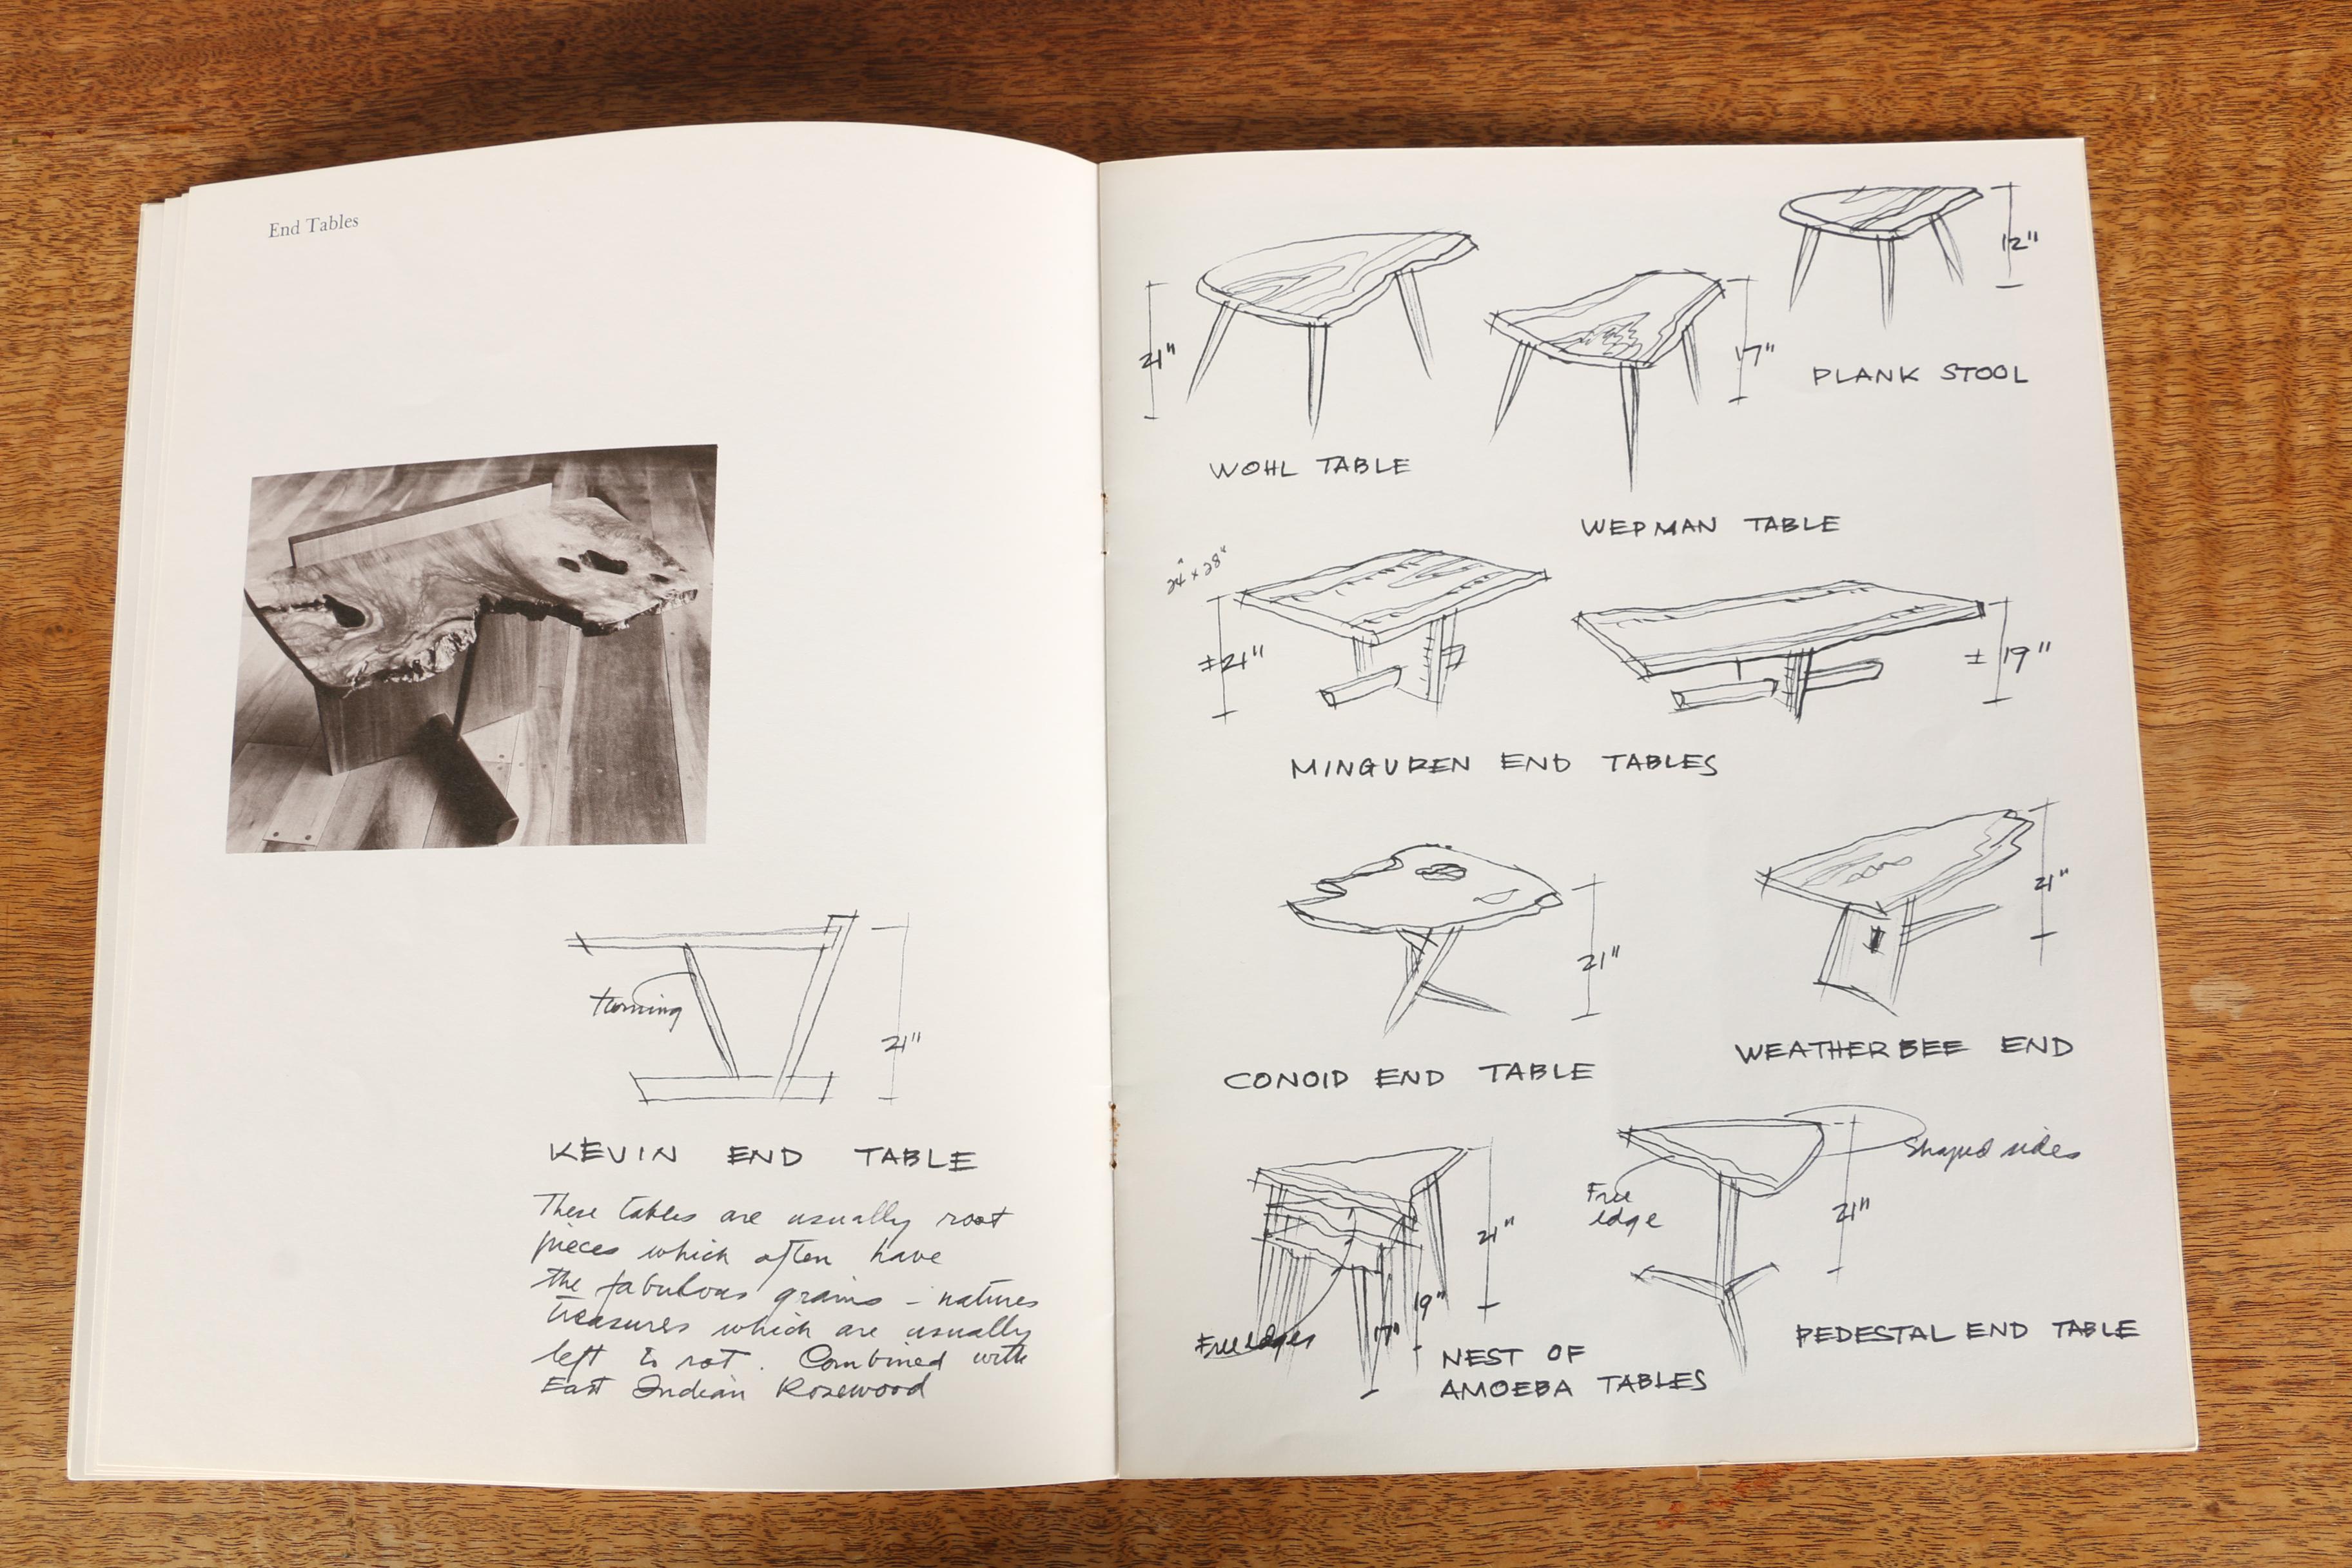 End Tables
turning
21"
KEVIN END TABLE
These tables are usually root
pieces which often have
the fabulous grains - natures
treasures which are usually
left to rot. Combined with
East Indian Rosewood
21"
WOHL TABLE
17"
WEPMAN TABLE
12"
PLANK STOOL
24" x 28"
±21"
± 19"
MINGUREN END TABLES
21"
CONOID END TABLE
21"
WEATHERBEE END
Free edges
17"
19"
21"
NEST OF
AMOEBA TABLES
Free
edge
Shaped sides
21"
PEDESTAL END TABLE